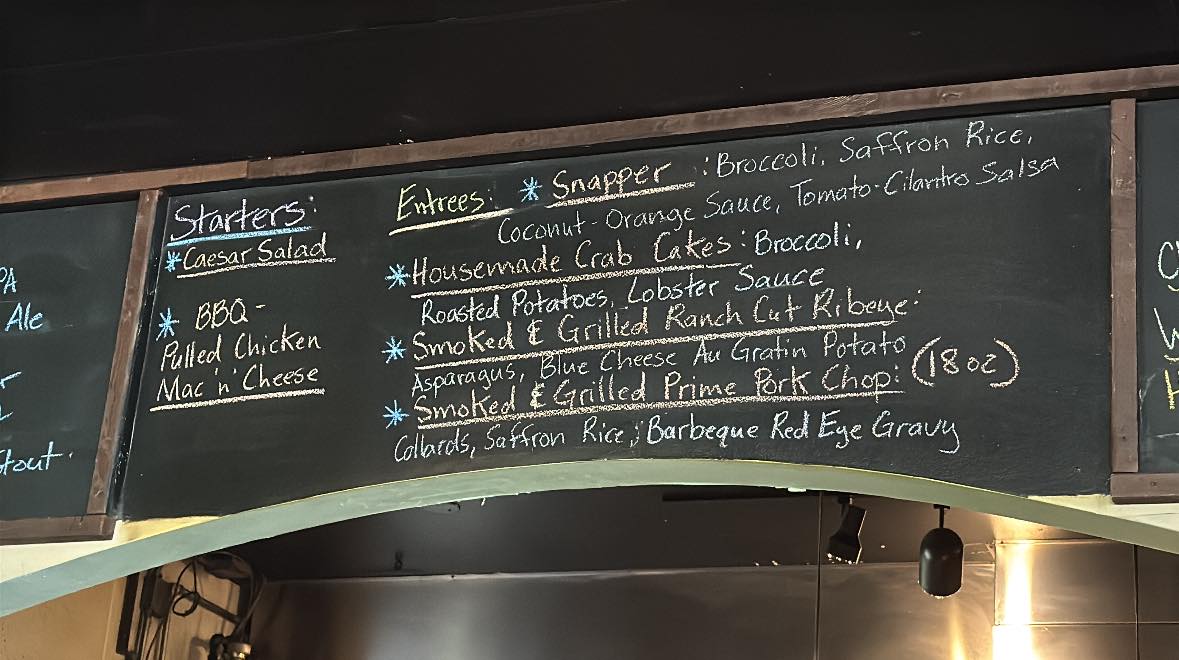 Starters:
*Caesar Salad
* BBQ-
Pulled Chicken
Mac 'n' Cheese
Entrees: * Snapper : Broccoli, Saffron Rice,
Coconut-Orange Sauce, Tomato-Cilantro Salsa
*Housemade Crab Cakes: Broccoli,
Roasted Potatoes, Lobster Sauce
* Smoked & Grilled Ranch Cut Ribeye:
Asparagus, Blue Cheese Au Gratin Potato
* Smoked & Grilled Prime Pork Chop: (18oz)
Collards, Saffron Rice, Barbeque Red Eye Gravy
PA
Ale
tout.